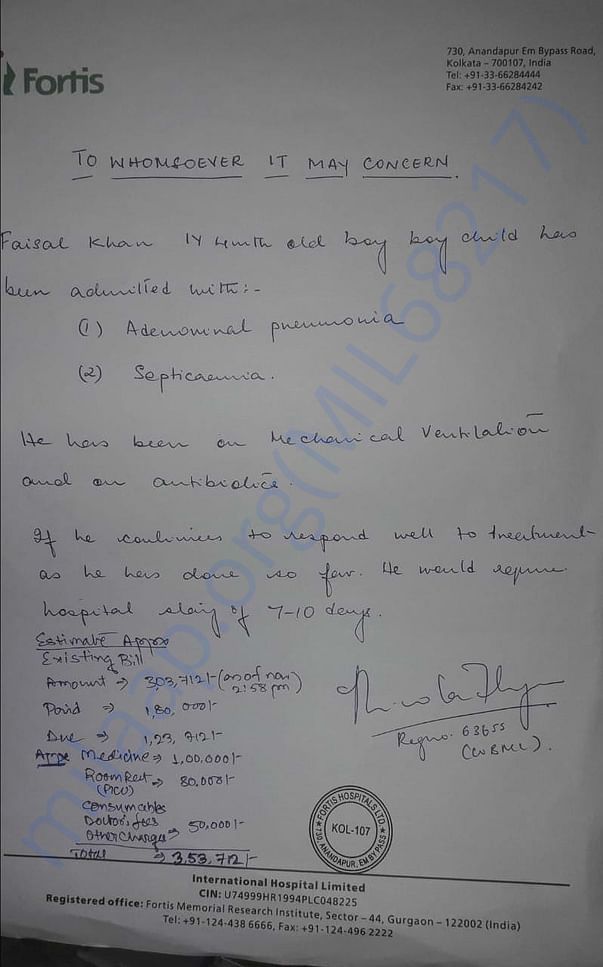 Fortis
730, Anandapur Em Bypass Road,
Kolkata – 700107, India
Tel: +91-33-66284444
Fax: +91-33-66284242
TO WHOMSOEVER IT MAY CONCERN.
Faisal Khan 1Y 4mth old boy boy child has
been admitted with:-
(1) Adenominal pneumonia
(2) Septicaemia.
He has been on Mechanical Ventilation
and on antibiotics.
If he continues to respond well to treatment
as he has done so far. He would require
hospital stay of 7-10 days.
Estimate Approx
Existing Bill
Amount → 3,03,712/- (as of now
2:58 pm)
Paid → 1,80,000/-
Due → 1,23,712/-
Medicine → 1,00,000/-
Room Rent → 80,000/-
(PICU)
Consumables
Doctor's fees
Other Charges → 50,000/-
Total → 3,53,712/-
Regno. 63655
(WBMC).
FORTIS HOSPITALS LTD.
KOL-107
730, ANANDAPUR, EM BYPASS
International Hospital Limited
CIN: U74999HR1994PLC048225
Registered office: Fortis Memorial Research Institute, Sector – 44, Gurgaon – 122002 (India)
Tel: +91-124-438 6666, Fax: +91-124-496 2222
milaap.org(MIL68217)